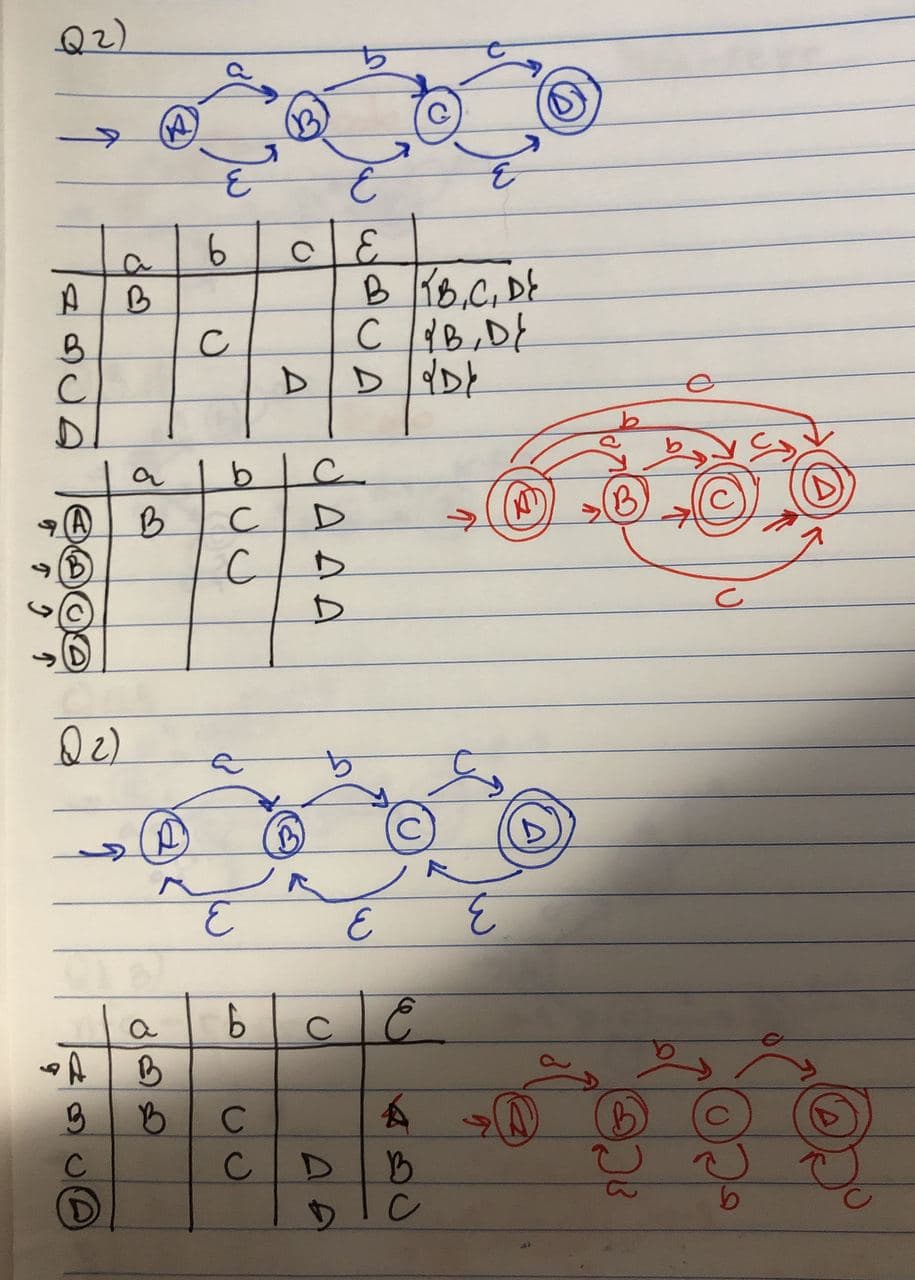 Q2)
a b c
A B C D
ε ε ε
a b c ε
A B B {B,C,D}
B C C {B,D}
C D D {D}
D
a b c
A B C D
B C D
C D
D
c
b
a b c
A B C D
c
Q2)
a b c
A B C D
ε ε ε
a b c ε
A B
B B C A
C C D B
D D C
a b c
A B C D
a b c